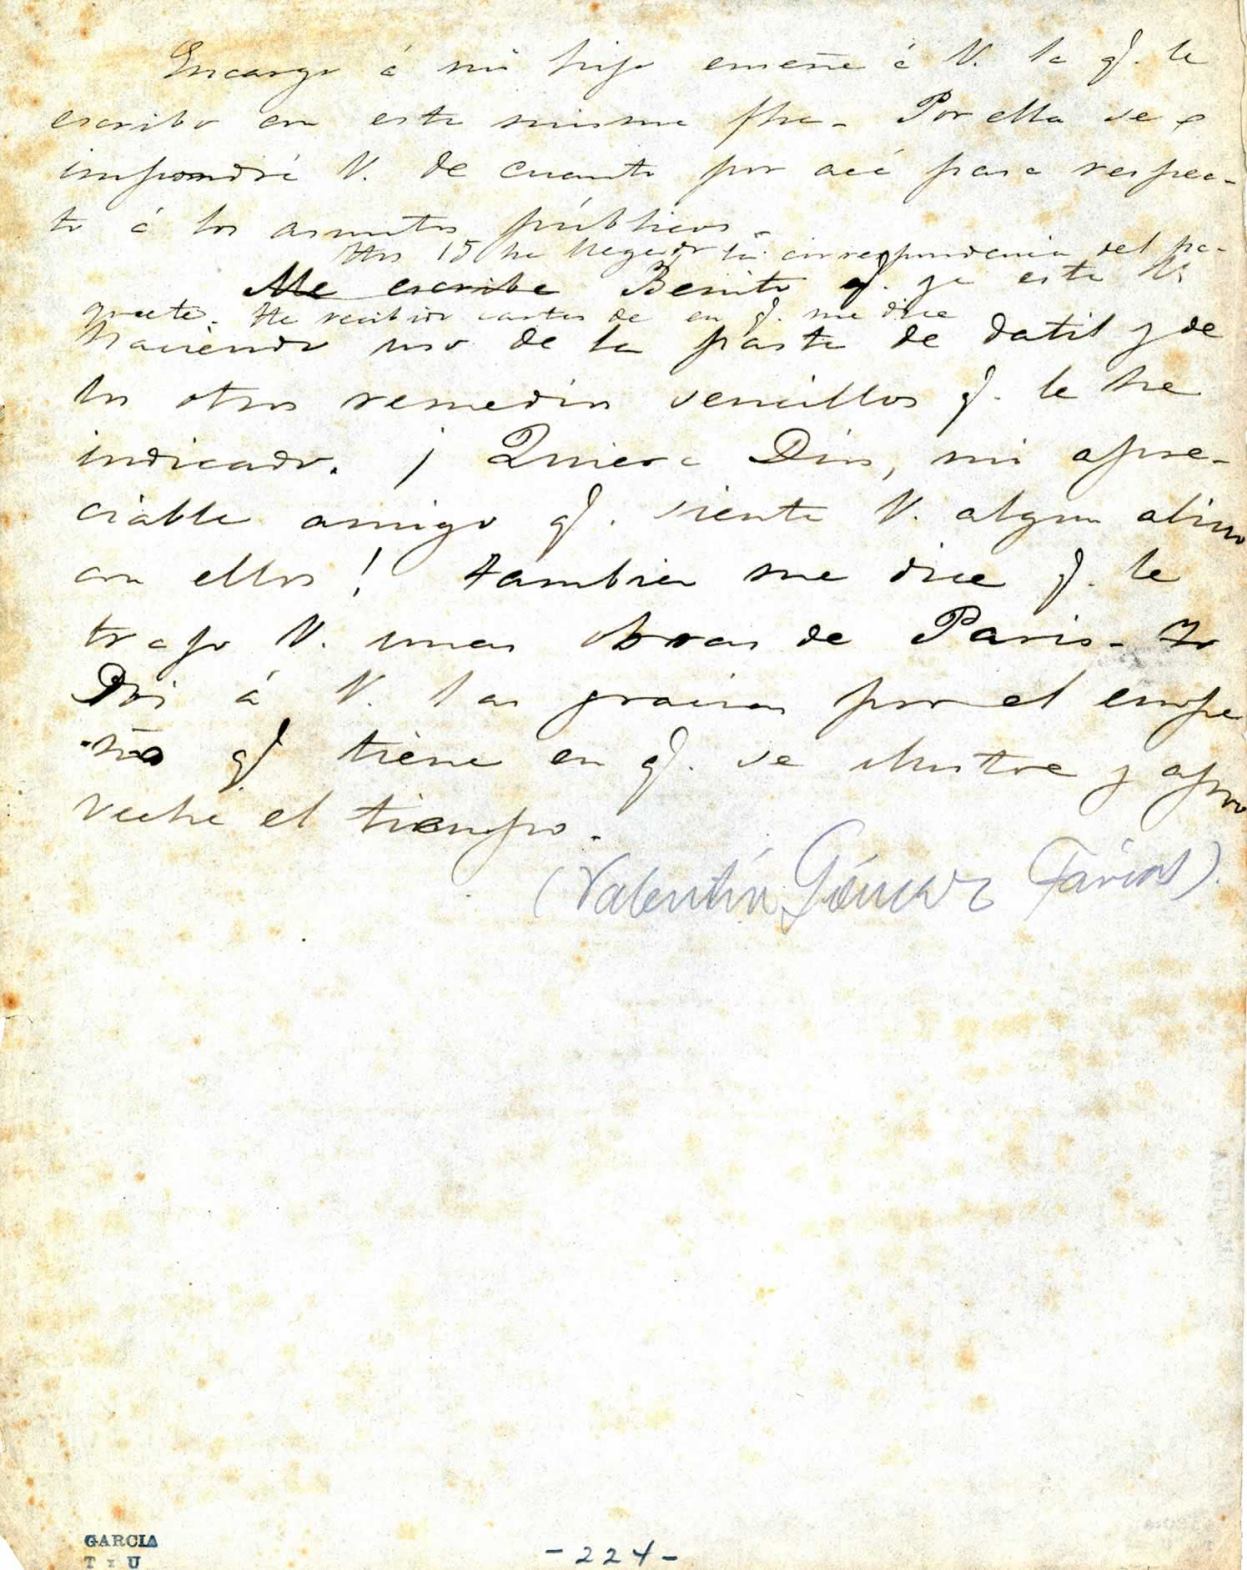 Encargo á mi hijo enseñe á V. la q. le
escribo en esta misma fha. Por ella se
impondrá V. de cuanto por acá pasa respec-
to á los asuntos públicos.
Hoy 15 ha llegado la correspondencia del pa-
Me escribe Benito q. ya está V.
quete. He recibido cartas de en q. me dice
haciendo uso de la pasta de datil y de
los otros remedios sencillos q. le he
indicado. ¡Quiera Dios, mi apre-
ciable amigo q. siente V. algun alivio
con ellos! tambien me dice q. le
trajo V. unas obras de Paris. Yo
Doi á V. las gracias por el empe
ño q. tiene en q. se ilustre y apro
veche el tiempo.
(Valentín Gómez Farías).
GARCIA
-224-